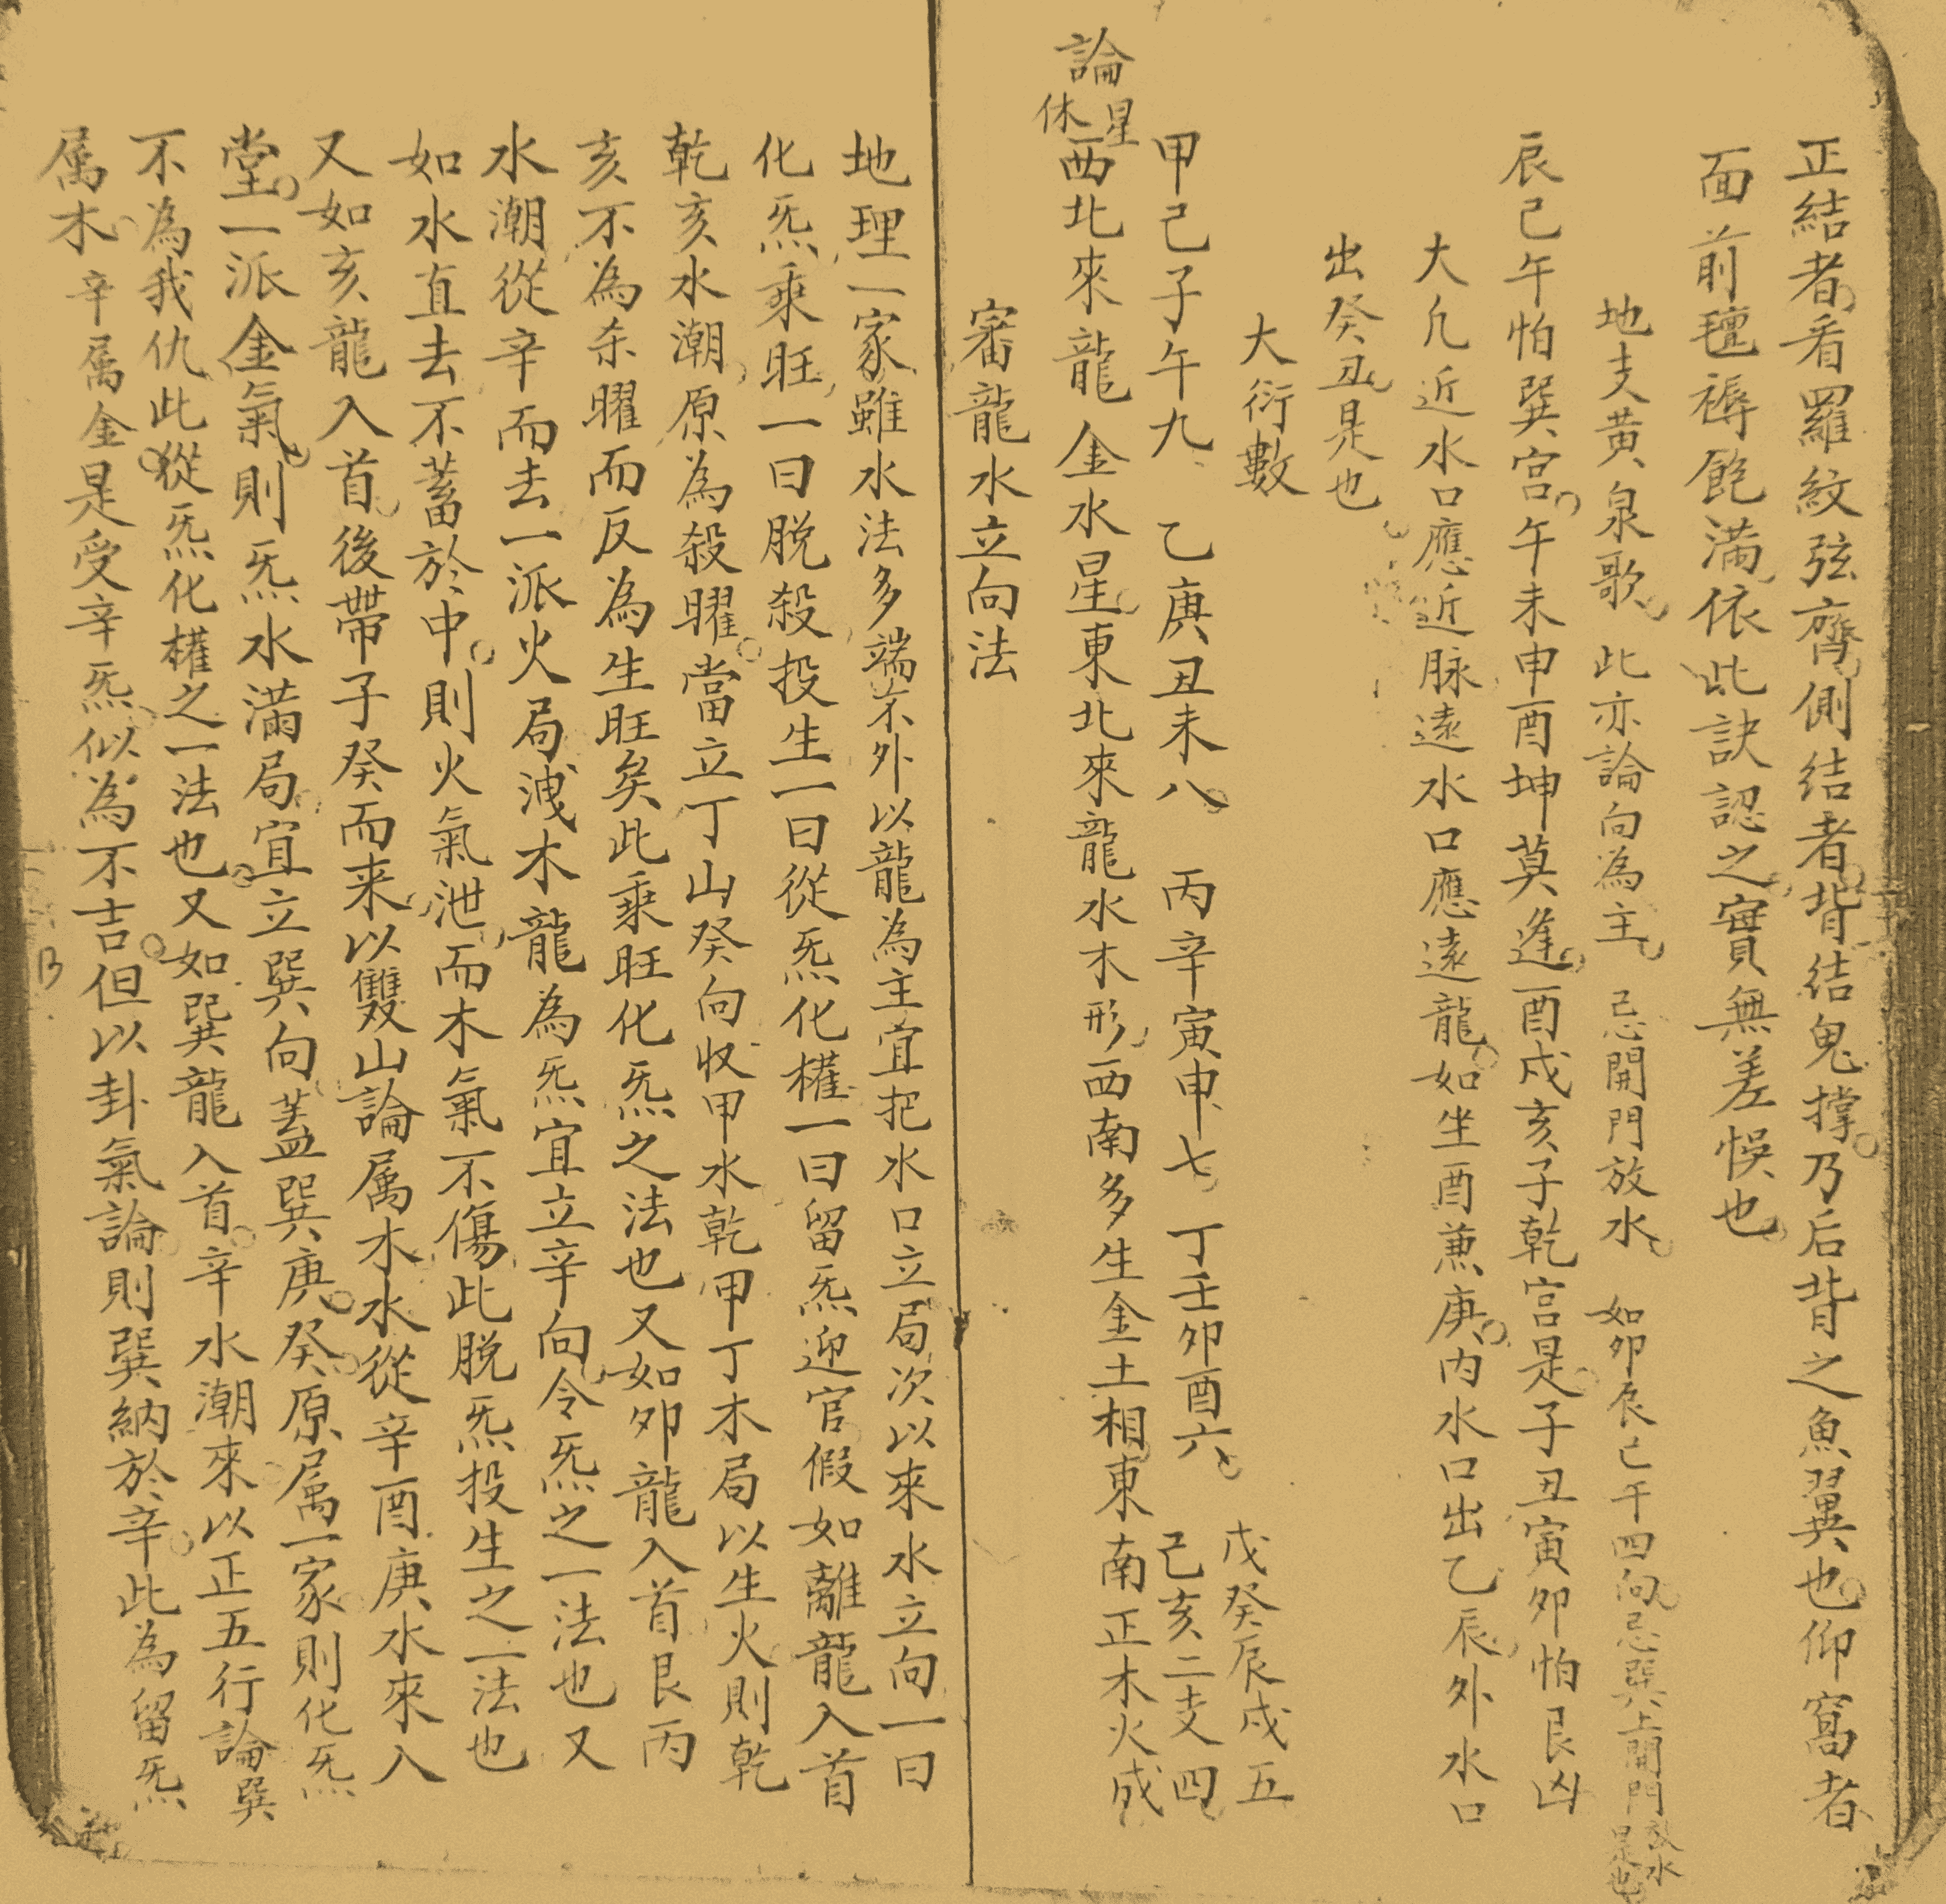 正結者看羅紋弦齊側结者背结鬼撑乃后背之魚翼也仰窩者
面前氊褥飽满依此訣認之實無差悮也
地支黄泉歌 此亦論向為主 忌開門放水 如夘辰巳午四向忌巽上開門放水是也
辰巳午怕巽宫午未申酉坤莫逢酉戍亥子乾宫是子丑寅夘怕艮凶
大凢近水口應近脉遠水口應遠龍如坐酉兼庚内水口出乙辰外水口
出癸丑是也
大衍數
甲己子午九 乙庚丑未八 丙辛寅申七 丁壬夘酉六 戊癸辰戍五 己亥二支四
論星休
西北來龍金水星東北來龍水木形西南多生金土相東南正木火成
審龍水立向法
地理一家雖水法多端不外以龍為主宜把水口立局次以來水立向一曰
化炁乘旺一曰脱殺投生一曰從炁化權一曰留炁迎官假如離龍入首
乾亥水潮原為殺曜當立丁山癸向収甲水乾甲丁木局以生火則乾
亥不為杀曜而反為生旺矣此乘旺化炁之法也又如夘龍入首艮丙
水潮從辛而去一派火局洩木龍為炁宜立辛向令炁之一法也又
如水直去不蓄於中則火氣泄而木氣不傷此脱炁投生之一法也
又如亥龍入首後帶子癸而来以雙山論属木水從辛酉庚水來入
堂一派金氣則炁水滿局宜立巽向蓋巽庚癸原属一家則化炁
不為我仇此從炁化權之一法也又如巽龍入首辛水潮來以正五行論巽
属木辛属金是受辛炁似為不吉但以卦氣論則巽納於辛此為留炁